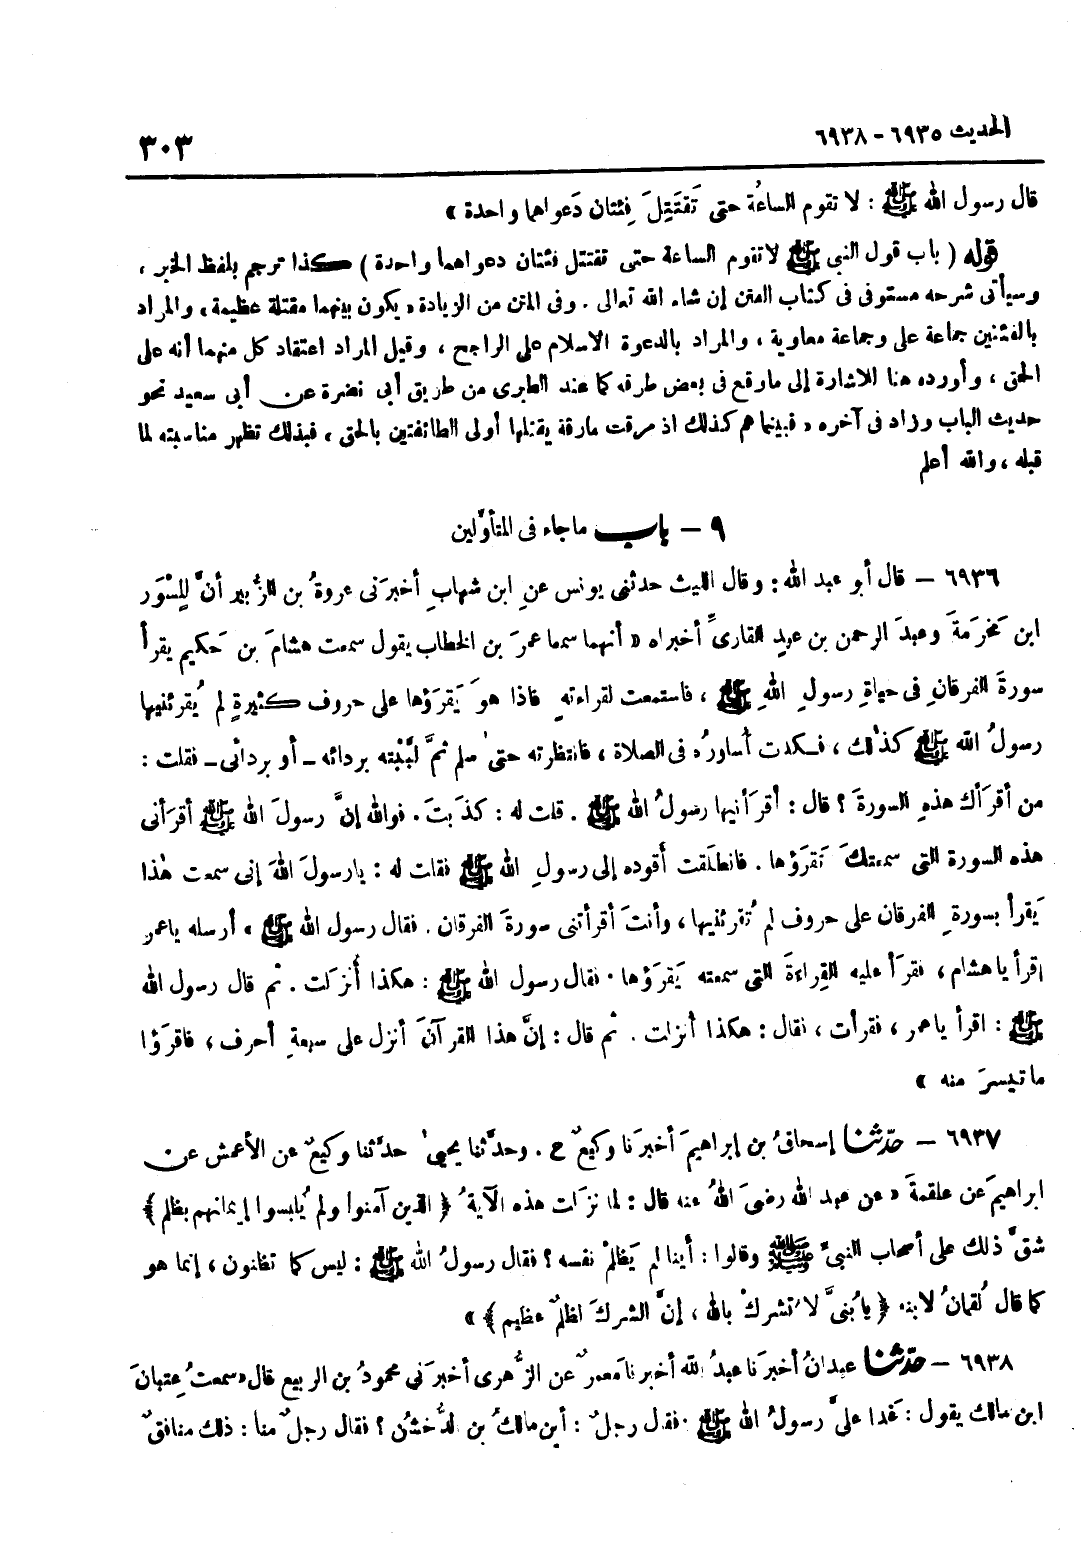 الحديث ٦٩٣٥ - ٦٩٣٨
٣٠٣
قال رسول الله ﷺ : لا تقوم الساعةُ حتى تَقتَتِلَ فِئتان دَعواهما واحدة »
قوله ( باب قول النبي ﷺ لا تقوم الساعة حتى تقتتل فئتان دعواهما واحدة ) كذا ترجم بلفظ الخبر ،
وسيأتى شرحه مستوفى فى كتاب الفتن إن شاء الله تعالى . وفى المتن من الزيادة « يكون بينهما مقتلة عظيمة ، والمراد
بالفئتين جماعة على وجماعة معاوية ، والمراد بالدعوة الاسلام على الراجح ، وقيل المراد اعتقاد كل منهما أنه على
الحق ، وأورده هنا للاشارة إلى ما وقع فى بعض طرقه كما عند الطبرى من طريق أبى نضرة عن أبى سعيد نحو
حديث الباب وزاد فى آخره « فبينما هم كذلك اذ مرقت مارقة يقتلها أولى الطائفتين بالحق ، فبذلك تظهر مناسبته لما
قبله ، والله أعلم
٩ - باب ماجاء فى المتأوِّلين
٦٩٣٦ - قال أبو عبد الله : وقال الليث حدثنى يونس عنِ ابن شهابِ أخبرَنى عروةُ بن الزُّبير أنَّ المِسْوَر
ابن مَخرَمةَ وعبدَ الرحمن بن عبدٍ القارىِّ أخبراه « أنهما سمعا عمرَ بن الخطاب يقول سمعت هشامَ بن حَكيم يقرأ
سورةَ الفرقانِ فى حياةِ رسولِ اللهِ ﷺ ، فاستمعت لقراءتهِ فاذا هوَ يَقرَؤها على حروف كثيرةٍ لم يُقرئنيها
رسولُ الله ﷺ كذٰلك ، فكدت أُساورُه فى الصلاة ، فانتظرته حتىٰ سلم ثمَّ لبَّبْته بردائه - أو بردائى - فقلت :
من أقرَأك هذهِ السورةَ ؟ قال : أقرَأنيها رسولُ الله ﷺ . قلت له : كذَبتَ . فوالله إنَّ رسولَ الله ﷺ أقرَأنى
هذه السورة التى سمعتكَ تَقرَؤها . فانطلَقت أقوده إلى رسولِ الله ﷺ فقلت له : يا رسولَ اللهَ إنى سمعت هٰذا
يَقرأ بسورةِ الفرقان على حروف لم تُقرئنيها ، وأنتَ أقرأتنى سورةَ الفرقان . فقال رسول الله ﷺ » أرسله ياعمر
إقرأ يا هشام ، فقرَأ عليه القِراءةَ التى سمعته يَقرَؤها . فقال رسول الله ﷺ : هكذا أُنزلَت . ثم قال رسول الله
ﷺ : اقرأ ياعمر ، فقرأت ، فقال : هكذا أنزلت . ثم قال : إنَّ هذا القرآنَ أنزل على سبعةِ أحرف ، فاقرَؤا
ما تيسرَ منه »
٦٩٣٧ - حدّثنا إسحاقُ بن إبراهيمَ أخبرَنا وكيعٌ ح . وحدَّثنا يحيىٰ حدَّثنا وكيعٌ عن الأعمش عن
ابراهيمَ عن علقمةَ « عن عبد الله رضىَ اللهُ عنه قال : لما نزَلت هذه الآيةُ ﴿ الذين آمنوا ولم يُلبسوا إيمانهم بظلم ﴾
شقَّ ذلك على أصحاب النبىِّ ﷺ وقالوا : أيُنا لم يَظلمْ نفسه ؟ فقال رسولُ الله ﷺ : ليس كما تظنون ، إنما هو
كما قال لُقمانُ لابنه ﴿ يابُنىَّ لا تُشركْ بالله ، إنَّ الشركَ لظلمٌ عظيم ﴾ »
٦٩٣٨ - حدّثنا عبدانُ أخبرَنا عبدُ الله أخبرنا معمرٌ عن الزُّهرى أخبرَنى محمودُ بن الربيع قال « سمعتُ عِتبانَ
ابن مالك يقول : غَدا علىَّ رسولُ الله ﷺ . فقال رجلٌ : أين مالكُ بن الدُّخشُن ؟ فقال رجلٌ منا : ذلك منافقٌ